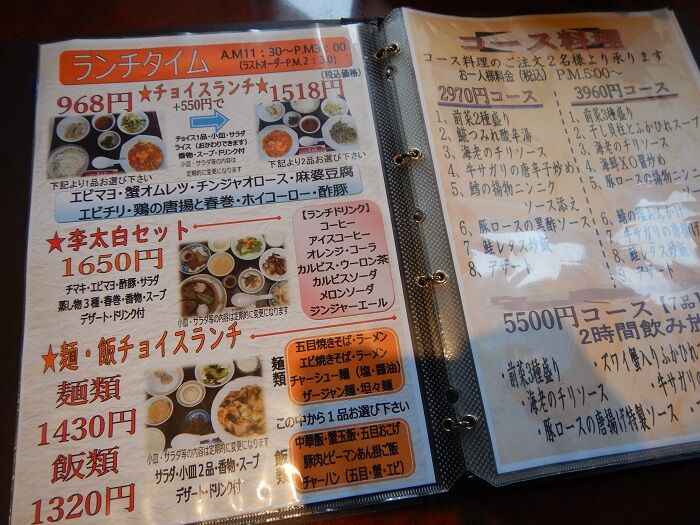 ランチタイム
A.M11:30~P.M3:00
(ラストオーダーP.M.2:30)
★チョイスランチ★
(税込価格)
968円
+550円で
1518円
チョイス1品・小皿・サラダ
ライス(おかわりできます)
香物・スープ・ドリンク付
小皿・サラダ等の内容は
定期的に変更になります
下記より1品お選び下さい
下記より2品お選び下さい
エビマヨ・蟹オムレツ・チンジャオロース・麻婆豆腐
エビチリ・鶏の唐揚と春巻・ホイコーロー・酢豚
★李太白セット
1650円
チマキ・エビマヨ・酢豚・サラダ
蒸し物3種・春巻・香物・スープ
デザート・ドリンク付
小皿・サラダ等の内容は定期的に変更になります
【ランチドリンク】
コーヒー
アイスコーヒー
オレンジ・コーラ
カルピス・ウーロン茶
カルピスソーダ
メロンソーダ
ジンジャーエール
★麺・飯チョイスランチ
麺類
1430円
飯類
1320円
小皿・サラダ等の内容は定期的に変更になります
サラダ・小皿2品・香物・スープ
デザート・ドリンク付
麺類
五目焼きそば・ラーメン
エビ焼きそば・ラーメン
チャーシュー麺(塩・醤油)
ザージャン麺・坦々麺
この中から1品お選び下さい
飯類
中華飯・蟹玉飯・五目おこげ
豚肉とピーマンあん掛ご飯
チャーハン(五目・蟹・エビ)
コース料理
コース料理のご注文2名様より承ります
お一人様料金(税込) P.M.5:00~
2970円コース
1、前菜2種盛り
2、鱶つみれ酸辛湯
3、海老のチリソース
4、牛サガリの唐辛子炒め
5、鱈の揚物ニンニク
ソース添え
6、豚ロースの黒酢ソース
7、鮭レタス炒飯
8、デザート
3960円コース
1、前菜3種盛り
2、干し貝柱とふかひれスープ
3、海老のチリソース
4、海鮮XO醤炒め
5、豚ロースの揚物ニンニク
9、デザート
5500円コース【7品】
2時間飲み
・前菜3種盛り
・スワイ蟹入りふかひれ
・海老のチリソース
・牛サガリ
・豚ロースの唐揚げ特製ソース